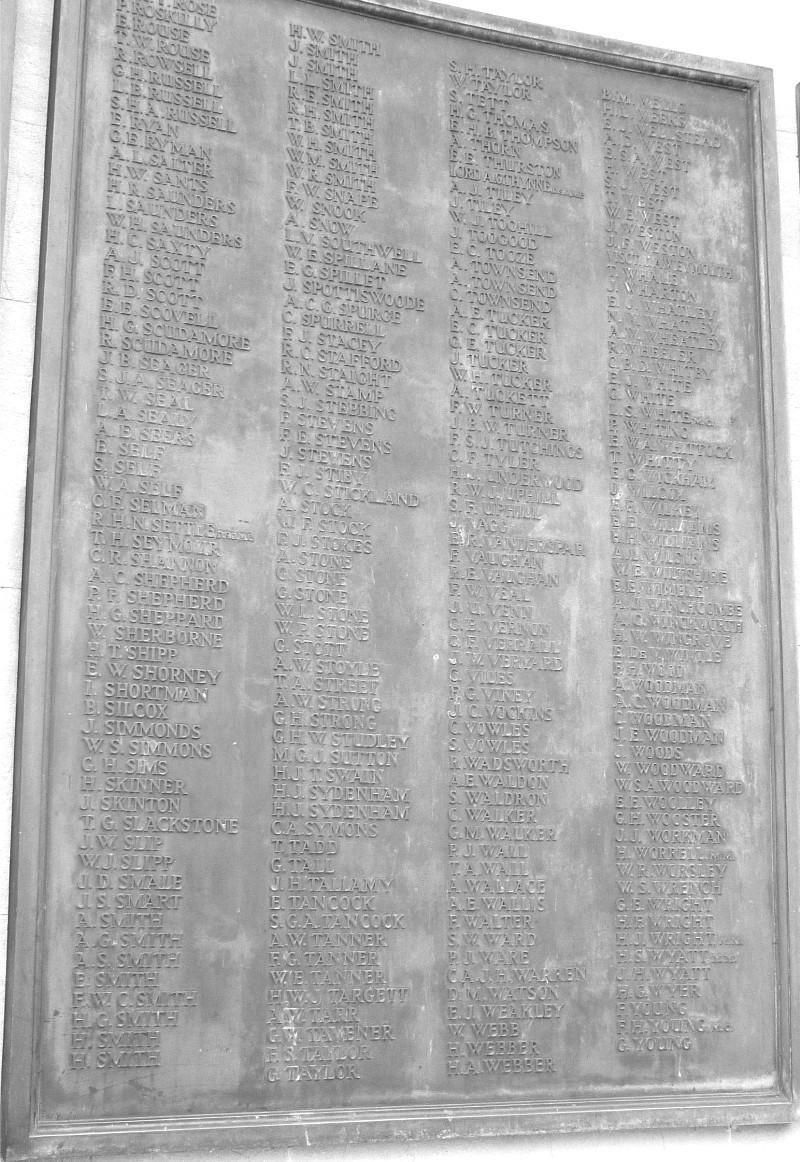 ROSE
P. ROSKILLY
E. ROUSE
T. W. ROUSE
R. ROWSELL
G. H. RUSSELL
L. E. RUSSELL
S. H. A. RUSSELL
E. RYAN
G. E. RYMAN
A. L. SALTER
H. W. SANTS
H. R. SAUNDERS
L. SAUNDERS
W. H. SAUNDERS
H. C. SAXTY
A. J. SCOTT
F. H. SCOTT
R. D. SCOTT
E. E. SCOVELL
H. G. SCUDAMORE
R. SCUDAMORE
J. B. SEAGER
S. J. A. SEAGER
T. W. SEAL
L. A. SEALY
A. E. SEERS
E. SELF
S. SELF
W. A. SELF
C. F. SELMAN
R. H. N. SETTLE
T. H. SEYMOUR
C. R. SHANNIN
A. C. SHEPHERD
P. F. SHEPHERD
H. G. SHEPPARD
W. SHERBORNE
H. T. SHIPP
E. W. SHORNEY
I. SHORTMAN
B. SILCOX
J. SIMMONDS
W. S. SIMMONS
G. H. SIMS
H. SKINNER
J. SKINTON
T. G. SLACKSTONE
J. W. SLIP
W. J. SLIPP
J. D. SMALE
J. S. SMART
A. SMITH
A. G. SMITH
A. S. SMITH
E. SMITH
F. W. C. SMITH
H. G. SMITH
H. SMITH
H. SMITH
H. W. SMITH
J. SMITH
J. SMITH
L. J. SMITH
R. E. SMITH
R. H. SMITH
T. B. SMITH
W. H. SMITH
W. M. SMITH
W. R. SMITH
F. W. SNAPE
W. SNOOK
A. SNOW
L. V. SOUTHWELL
W. E. SPILLANE
E. G. SPILLET
J. SPOTTISWOODE
A. C. G. SPURGE
C. SPURRELL
F. J. STACEY
R. C. STAFFORD
R. N. STAIGHT
A. W. STAMP
S. J. STEBBING
F. STEVENS
F. E. STEVENS
J. STEVENS
E. J. STIBY
W. C. STICKLAND
A. STOCK
W. F. STOCK
F. J. STOKES
A. STONE
C. STONE
G. STONE
W. L. STONE
W. F. STONE
G. STOTT
A. W. STOYLE
T. A. STREET
A. W. STRONG
G. H. STRONG
G. H. W. STUDLEY
M. G. J. SUTTON
H. J. T. SWAIN
H. J. SYDENHAM
H. J. SYDENHAM
C. A. SYMONS
T. TADD
G. TALL
J. H. TALLAMY
E. TANCOCK
S. G. A. TANCOCK
A. W. TANNER
F. G. TANNER
W. E. TANNER
H. W. J. TARGETT
A. W. TARR
G. W. TAVENER
F. S. TAYLOR
G. TAYLOR
S. H. TAYLOR
W. TAYLOR
S. TETT
H. G. THOMAS
E. H. R. THOMPSON
A. THORN
E. E. THURSTON
LORD A. G. THYNNE
A. J. TILEY
J. TILEY
W. J. TOGHILL
J. TOOGOOD
E. C. TOOZE
A. TOWNSEND
A. TOWNSEND
C. TOWNSEND
A. E. TUCKER
E. C. TUCKER
G. E. TUCKER
J. TUCKER
W. H. TUCKER
A. TUCKETT
F. W. TURNER
J. B. W. TURNER
F. S. J. TUTCHINGS
C. F. TYLER
UNDERWOOD
R. W. J. UPHILL
S. F. UPHILL
VAGG
VANDERSPAR
F. VAUGHAN
R. E. VAUGHAN
F. W. VEAL
J. U. VENN
C. B. VERNON
C. F. VERRALL
J. W. VERYARD
C. VILES
F. G. VINEY
J. C. VOCKINS
C. VOWLES
S. VOWLES
R. WADSWORTH
A. E. WALDON
S. WALDRON
C. WALKER
G. M. WALKER
P. J. WALL
T. A. WALL
A. WALLACE
A. E. WALLIS
F. WALTER
S. W. WARD
P. J. WARE
C. A. J. H. WARREN
D. M. WATSON
E. J. WEAKLEY
W. WEBB
H. WEBBER
H. A. WEBBER
WEEKS
WELLSTEAD
A. D. WEST
E. S. A. WEST
WEST
S. J. WEST
WEST
W. E. WEST
J. WESTON
J. F. WESTON
VISCT. WEYMOUTH
T. WHALE
WHARTON
WHATLEY
WHATLEY
WHEATLEY
R. WHEELER
WHITBY
WHITE
C. WHITE
L. S. WHITE
P. WHITING
WHITTOCK
T. WHITTY
WICKHAM
WILCOX
WILKEY
WILLIAMS
H. H. WILLIAMS
WILDIN
W. E. WILTSHIRE
WIMBLE
WINCHCOMBE
WINCKWORTH
H. W. WINGROVE
F. H. WOOD
A. WOODMAN
A. C. WOODMAN
C. WOODMAN
J. E. WOODMAN
J. WOODS
W. WOODWARD
W. S. A. WOODWARD
E. E. WOOLLEY
G. H. WOOSTER
J. J. WORKMAN
H. WORRELL M.M.
W. R. WORSLEY
W. S. WRENCH
G. E. WRIGHT
H. F. WRIGHT
H. J. WRIGHT
H. S. WYATT
J. H. WYATT
H. G. WYER
F. YOUNG
F. H. YOUNG M.C.
G. YOUNG